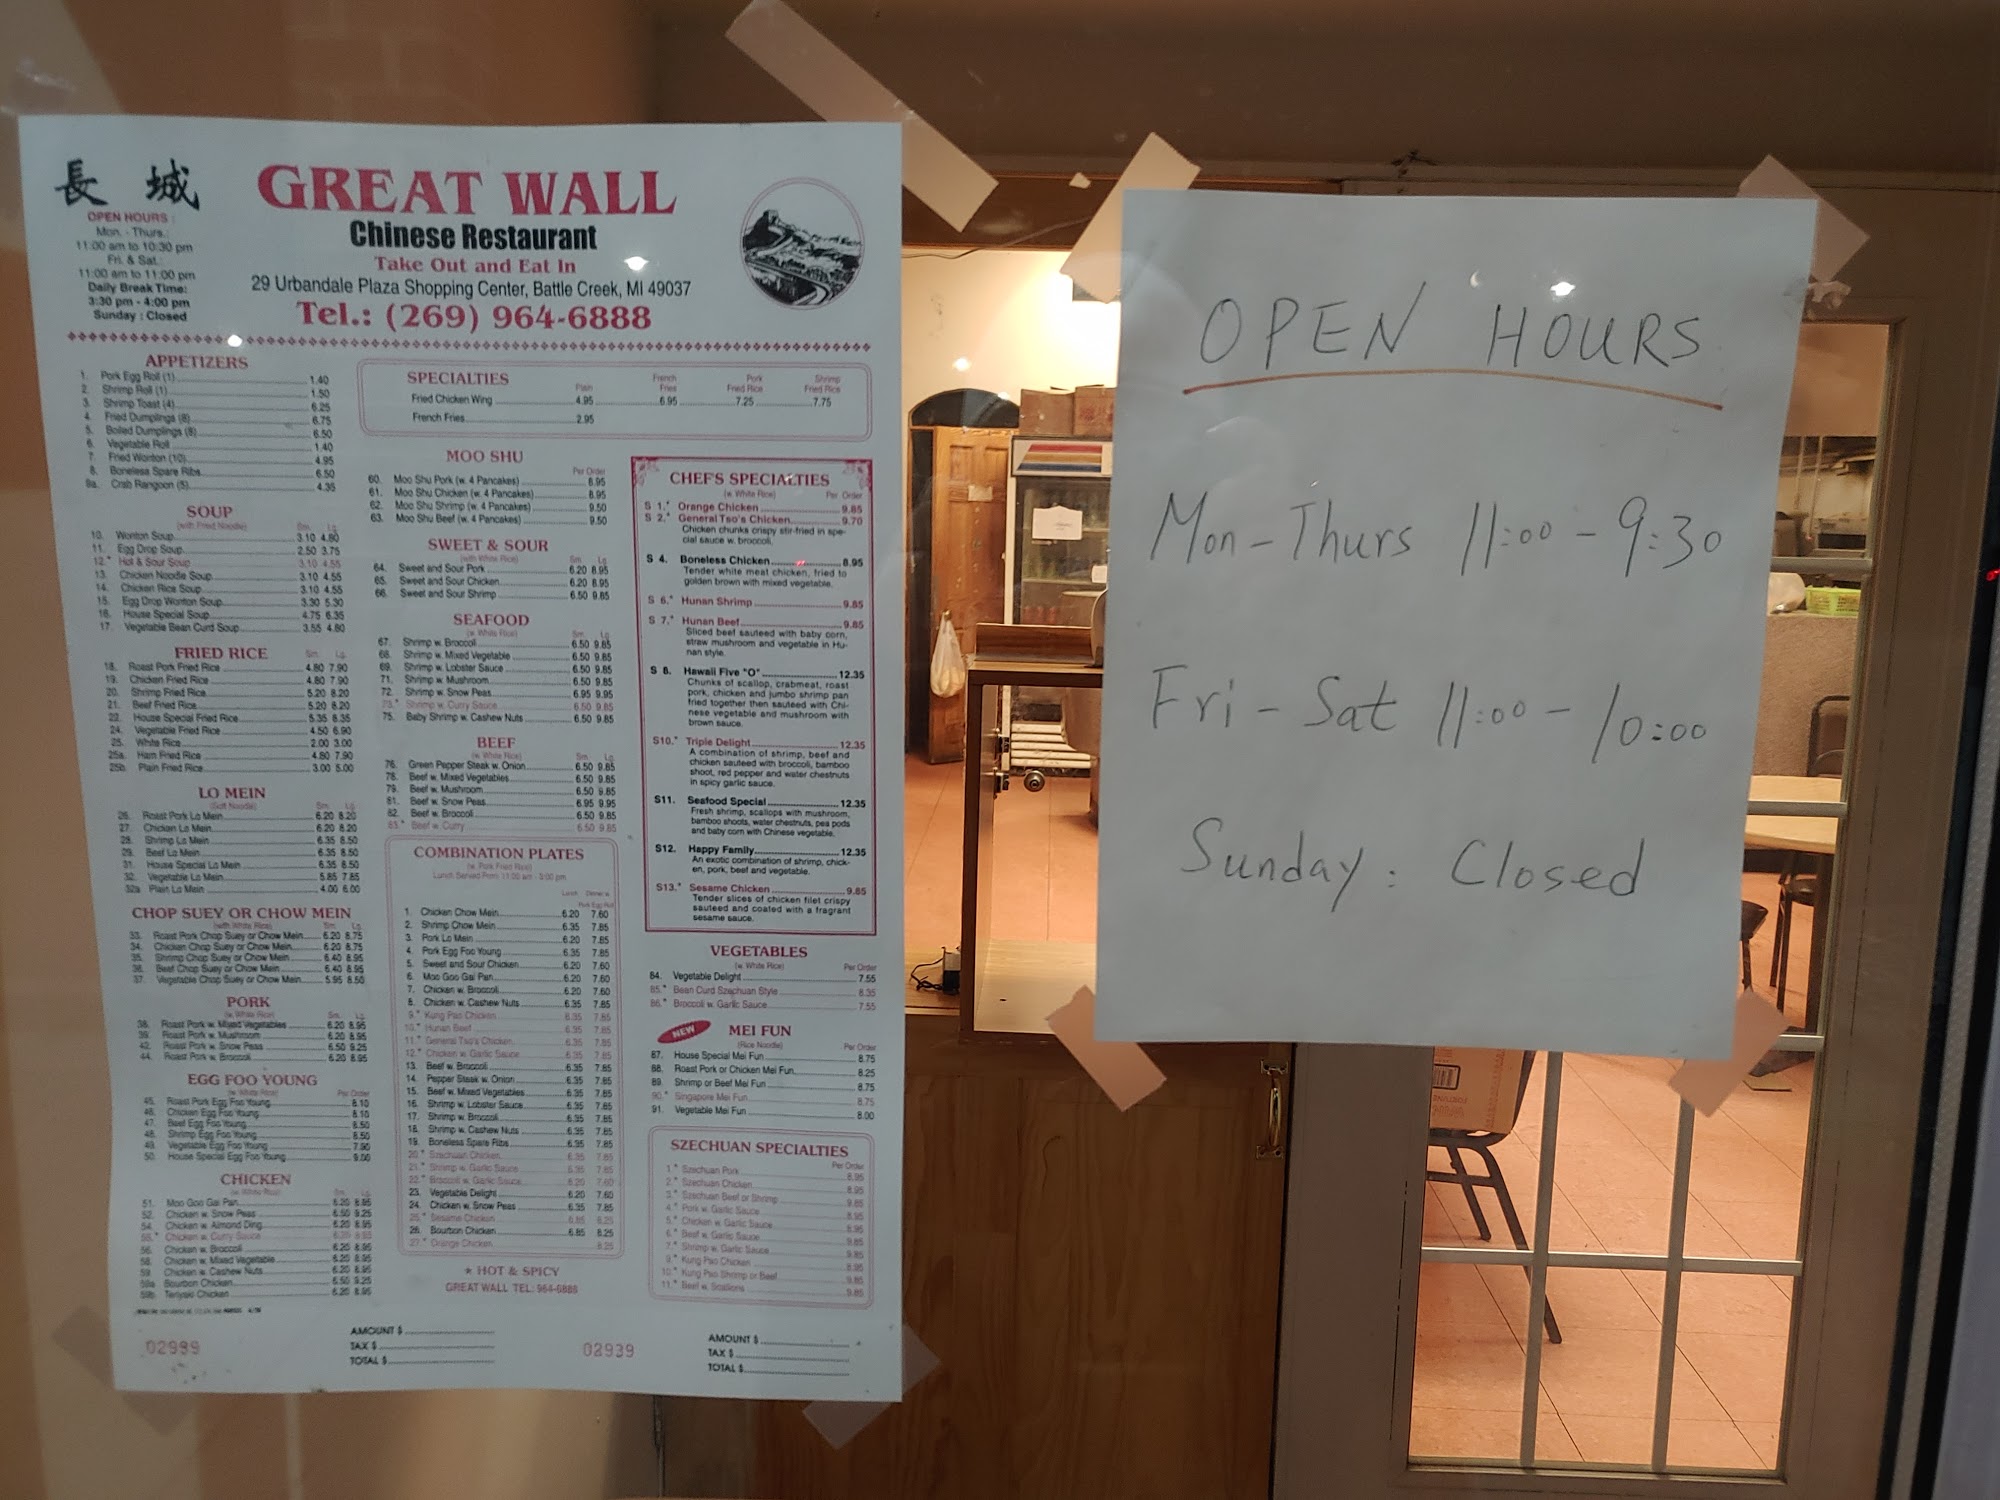 長 城
OPEN HOURS :
Mon. - Thurs.:
11:00 am to 10:30 pm
Fri. & Sat.:
11:00 am to 11:00 pm
Daily Break Time:
3:30 pm - 4:00 pm
Sunday : Closed
GREAT WALL
Chinese Restaurant
Take Out and Eat In
29 Urbandale Plaza Shopping Center, Battle Creek, MI 49037
Tel.: (269) 964-6888
APPETIZERS
1. Pork Egg Roll (1) 1.40
2. Shrimp Roll (1) 1.50
3. Shrimp Toast (4) 6.25
4. Fried Dumplings (8) 6.75
5. Boiled Dumplings (8) 6.50
6. Vegetable Roll 1.40
7. Fried Wonton (10) 4.95
8. Boneless Spare Ribs 6.50
9a. Crab Rangoon (5) 4.35
SOUP
(with Fried Noodle) Sm. Lg.
10. Wonton Soup 3.10 4.80
11. Egg Drop Soup 2.50 3.75
12.* Hot & Sour Soup 3.10 4.55
13. Chicken Noodle Soup 3.10 4.55
14. Chicken Rice Soup 3.10 4.55
15. Egg Drop Wonton Soup 3.30 5.30
16. House Special Soup 4.75 6.35
17. Vegetable Bean Curd Soup 3.55 4.80
FRIED RICE Sm. Lg.
18. Roast Pork Fried Rice 4.80 7.90
19. Chicken Fried Rice 4.80 7.90
20. Shrimp Fried Rice 5.20 8.20
21. Beef Fried Rice 5.20 8.20
22. House Special Fried Rice 5.35 8.35
24. Vegetable Fried Rice 4.50 6.90
25. White Rice 2.00 3.00
25a. Ham Fried Rice 4.80 7.90
25b. Plain Fried Rice 3.00 5.00
LO MEIN
(Soft Noodle) Sm. Lg.
26. Roast Pork Lo Mein 6.20 8.20
27. Chicken Lo Mein 6.20 8.20
28. Shrimp Lo Mein 6.35 8.50
29. Beef Lo Mein 6.35 8.50
31. House Special Lo Mein 6.35 8.50
32. Vegetable Lo Mein 5.85 7.85
32a Plain Lo Mein 4.00 6.00
CHOP SUEY OR CHOW MEIN
(with White Rice) Sm. Lg.
33. Roast Pork Chop Suey or Chow Mein 6.20 8.75
34. Chicken Chop Suey or Chow Mein 6.20 8.75
35. Shrimp Chop Suey or Chow Mein 6.40 8.95
36. Beef Chop Suey or Chow Mein 6.40 8.95
37. Vegetable Chop Suey or Chow Mein 5.95 8.50
PORK
(w. White Rice) Sm. Lg.
38. Roast Pork w. Mixed Vegetables 6.20 8.95
39. Roast Pork w. Mushroom 6.20 8.95
42. Roast Pork w. Snow Peas 6.50 9.25
44. Roast Pork w. Broccoli 6.20 8.95
EGG FOO YOUNG
(w. White Rice) Per Order
45. Roast Pork Egg Foo Young 8.10
46. Chicken Egg Foo Young 8.10
47. Beef Egg Foo Young 8.50
48. Shrimp Egg Foo Young 8.50
49. Vegetable Egg Foo Young 7.90
50. House Special Egg Foo Young 9.00
CHICKEN
(w. White Rice) Sm. Lg.
51. Moo Goo Gai Pan 6.20 8.95
52. Chicken w. Snow Peas 6.50 9.25
54. Chicken w. Almond Ding 6.20 8.95
55.* Chicken w. Curry Sauce 6.20 8.95
56. Chicken w. Broccoli 6.20 8.95
58. Chicken w. Mixed Vegetable 6.20 8.95
59. Chicken w. Cashew Nuts 6.20 8.95
59a Bourbon Chicken 6.50 9.25
59b Teriyaki Chicken 6.20 8.95
SPECIALTIES Plain French Fries Pork Fried Rice Shrimp Fried Rice
Fried Chicken Wing 4.95 6.95 7.25 7.75
French Fries 2.95
MOO SHU
Per Order
60. Moo Shu Pork (w. 4 Pancakes) 8.95
61. Moo Shu Chicken (w. 4 Pancakes) 8.95
62. Moo Shu Shrimp (w. 4 Pancakes) 9.50
63. Moo Shu Beef (w. 4 Pancakes) 9.50
SWEET & SOUR
(with White Rice) Sm. Lg.
64. Sweet and Sour Pork 6.20 8.95
65. Sweet and Sour Chicken 6.20 8.95
66. Sweet and Sour Shrimp 6.50 9.85
SEAFOOD
(w. White Rice) Sm. Lg.
67. Shrimp w. Broccoli 6.50 9.85
68. Shrimp w. Mixed Vegetable 6.50 9.85
69. Shrimp w. Lobster Sauce 6.50 9.85
71. Shrimp w. Mushroom 6.50 9.85
72. Shrimp w. Snow Peas 6.95 9.95
73.* Shrimp w. Curry Sauce 6.50 9.85
75. Baby Shrimp w. Cashew Nuts 6.50 9.85
BEEF
(w. White Rice) Sm. Lg.
76. Green Pepper Steak w. Onion 6.50 9.85
78. Beef w. Mixed Vegetables 6.50 9.85
79. Beef w. Mushroom 6.50 9.85
81. Beef w. Snow Peas 6.95 9.95
82. Beef w. Broccoli 6.50 9.85
83.* Beef w. Curry 6.50 9.85
COMBINATION PLATES
(w. Pork Fried Rice)
Lunch Served From: 11:00 am - 3:00 pm
Lunch Dinner w. Pork Egg Roll
1. Chicken Chow Mein 6.20 7.60
2. Shrimp Chow Mein 6.35 7.85
3. Pork Lo Mein 6.20 7.85
4. Pork Egg Foo Young 6.35 7.85
5. Sweet and Sour Chicken 6.20 7.60
6. Moo Goo Gai Pan 6.20 7.60
7. Chicken w. Broccoli 6.20 7.60
8. Chicken w. Cashew Nuts 6.35 7.85
9.* Kung Pao Chicken 6.35 7.85
10.* Hunan Beef 6.35 7.85
11.* General Tso's Chicken 6.35 7.85
12.* Chicken w. Garlic Sauce 6.35 7.85
13. Beef w. Broccoli 6.35 7.85
14. Pepper Steak w. Onion 6.35 7.85
15. Beef w. Mixed Vegetables 6.35 7.85
16. Shrimp w. Lobster Sauce 6.35 7.85
17. Shrimp w. Broccoli 6.35 7.85
18. Shrimp w. Cashew Nuts 6.35 7.85
19. Boneless Spare Ribs 6.35 7.85
20.* Szechuan Chicken 6.35 7.85
21.* Shrimp w. Garlic Sauce 6.35 7.85
22.* Broccoli w. Garlic Sauce 6.20 7.60
23. Vegetable Delight 6.20 7.60
24. Chicken w. Snow Peas 6.35 7.85
25.* Sesame Chicken 6.85 8.25
26. Bourbon Chicken 6.85 8.25
27.* Orange Chicken 8.25
★ HOT & SPICY
GREAT WALL TEL: 964-6888
CHEF'S SPECIALTIES
(w. White Rice) Per Order
S 1.* Orange Chicken 9.85
S 2.* General Tso's Chicken 9.70
Chicken chunks crispy stir-fried in spe-
cial sauce w. broccoli.
S 4. Boneless Chicken 8.95
Tender white meat chicken, fried to
golden brown with mixed vegetable.
S 6.* Hunan Shrimp 9.85
S 7.* Hunan Beef 9.85
Sliced beef sauteed with baby corn,
straw mushroom and vegetable in Hu-
nan style.
S 8. Hawaii Five "O" 12.35
Chunks of scallop, crabmeat, roast
pork, chicken and jumbo shrimp pan
fried together then sauteed with Chi-
nese vegetable and mushroom with
brown sauce.
S10.* Triple Delight 12.35
A combination of shrimp, beef and
chicken sauteed with broccoli, bamboo
shoot, red pepper and water chestnuts
in spicy garlic sauce.
S11. Seafood Special 12.35
Fresh shrimp, scallops with mushroom,
bamboo shoots, water chestnuts, pea pods
and baby corn with Chinese vegetable.
S12. Happy Family 12.35
An exotic combination of shrimp, chick-
en, pork, beef and vegetable.
S13.* Sesame Chicken 9.85
Tender slices of chicken filet crispy
sauteed and coated with a fragrant
sesame sauce.
VEGETABLES
(w. White Rice) Per Order
84. Vegetable Delight 7.55
85.* Bean Curd Szechuan Style 8.35
86.* Broccoli w. Garlic Sauce 7.55
NEW MEI FUN
(Rice Noodle) Per Order
87. House Special Mei Fun 8.75
88. Roast Pork or Chicken Mei Fun 8.25
89. Shrimp or Beef Mei Fun 8.75
90.* Singapore Mei Fun 8.75
91. Vegetable Mei Fun 8.00
SZECHUAN SPECIALTIES
Per Order
1.* Szechuan Pork 8.95
2.* Szechuan Chicken 8.95
3.* Szechuan Beef or Shrimp 9.85
4.* Pork w. Garlic Sauce 8.95
5.* Chicken w. Garlic Sauce 8.95
6.* Beef w. Garlic Sauce 9.85
7.* Shrimp w. Garlic Sauce 9.85
9.* Kung Pao Chicken 8.95
10.* Kung Pao Shrimp or Beef 9.85
11.* Beef w. Scallions 9.85
02939
AMOUNT $
TAX $
TOTAL $
02939
AMOUNT $
TAX $
TOTAL $
OPEN HOURS
Mon - Thurs 11:00 - 9:30
Fri - Sat 11:00 - 10:00
Sunday : Closed